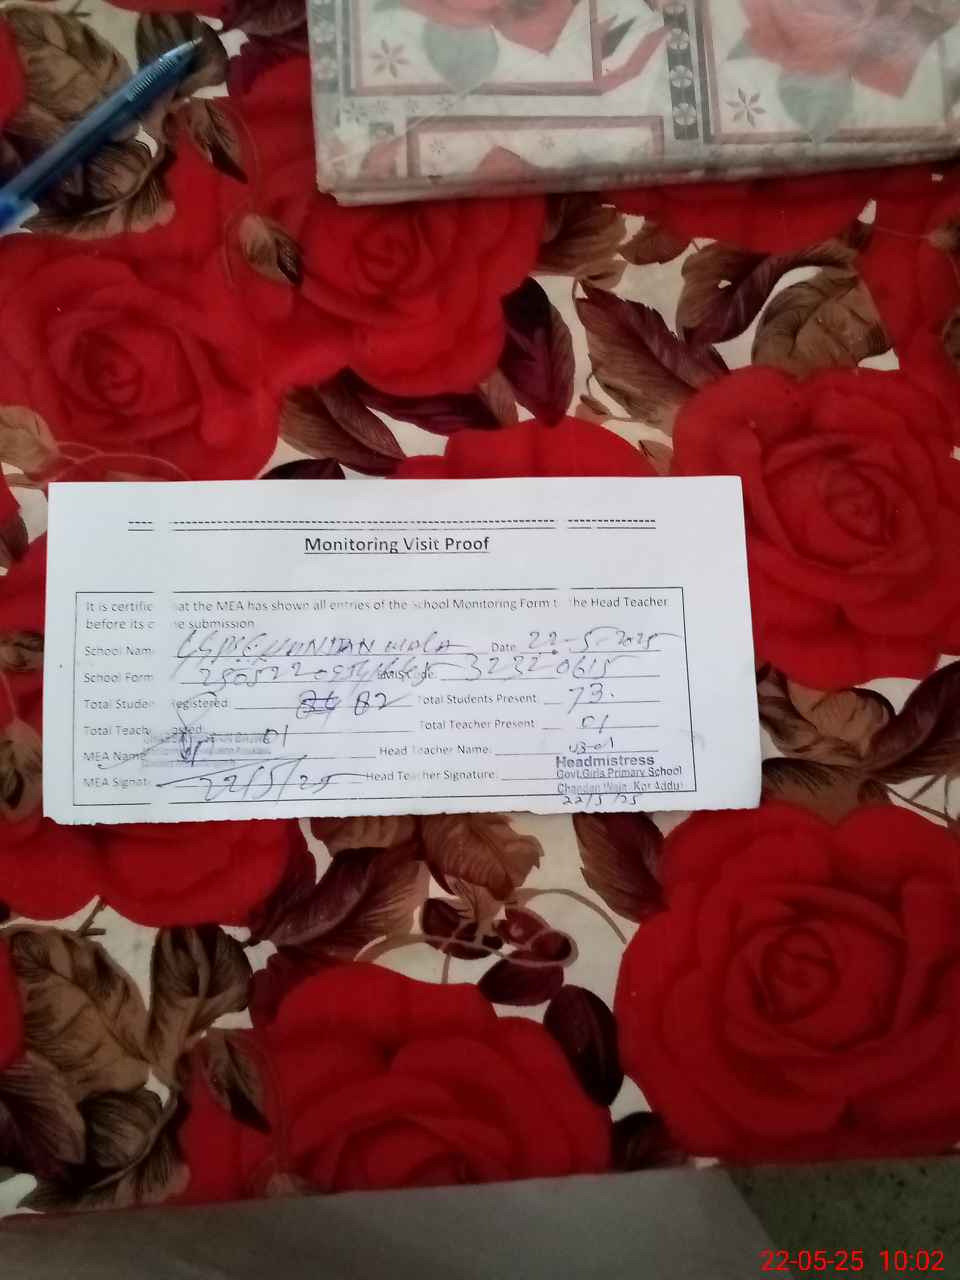 Monitoring Visit Proof
It is certific at the MEA has shown all entries of the School Monitoring Form t the Head Teacher
before its c e submission
School Nam WALA Date 22-5-2025
School Form 32320615
Total Stude egistered 82 Total Students Present 73.
Total Teach 01 Total Teacher Present 01
MEA Name Head Teacher Name:
MEA Signat 22/5/25 Head Teacher Signature:
Headmistress
Govt.Girls Primary School
Chandan Wala Kot Addu
22/5/25
22-05-25 10:02